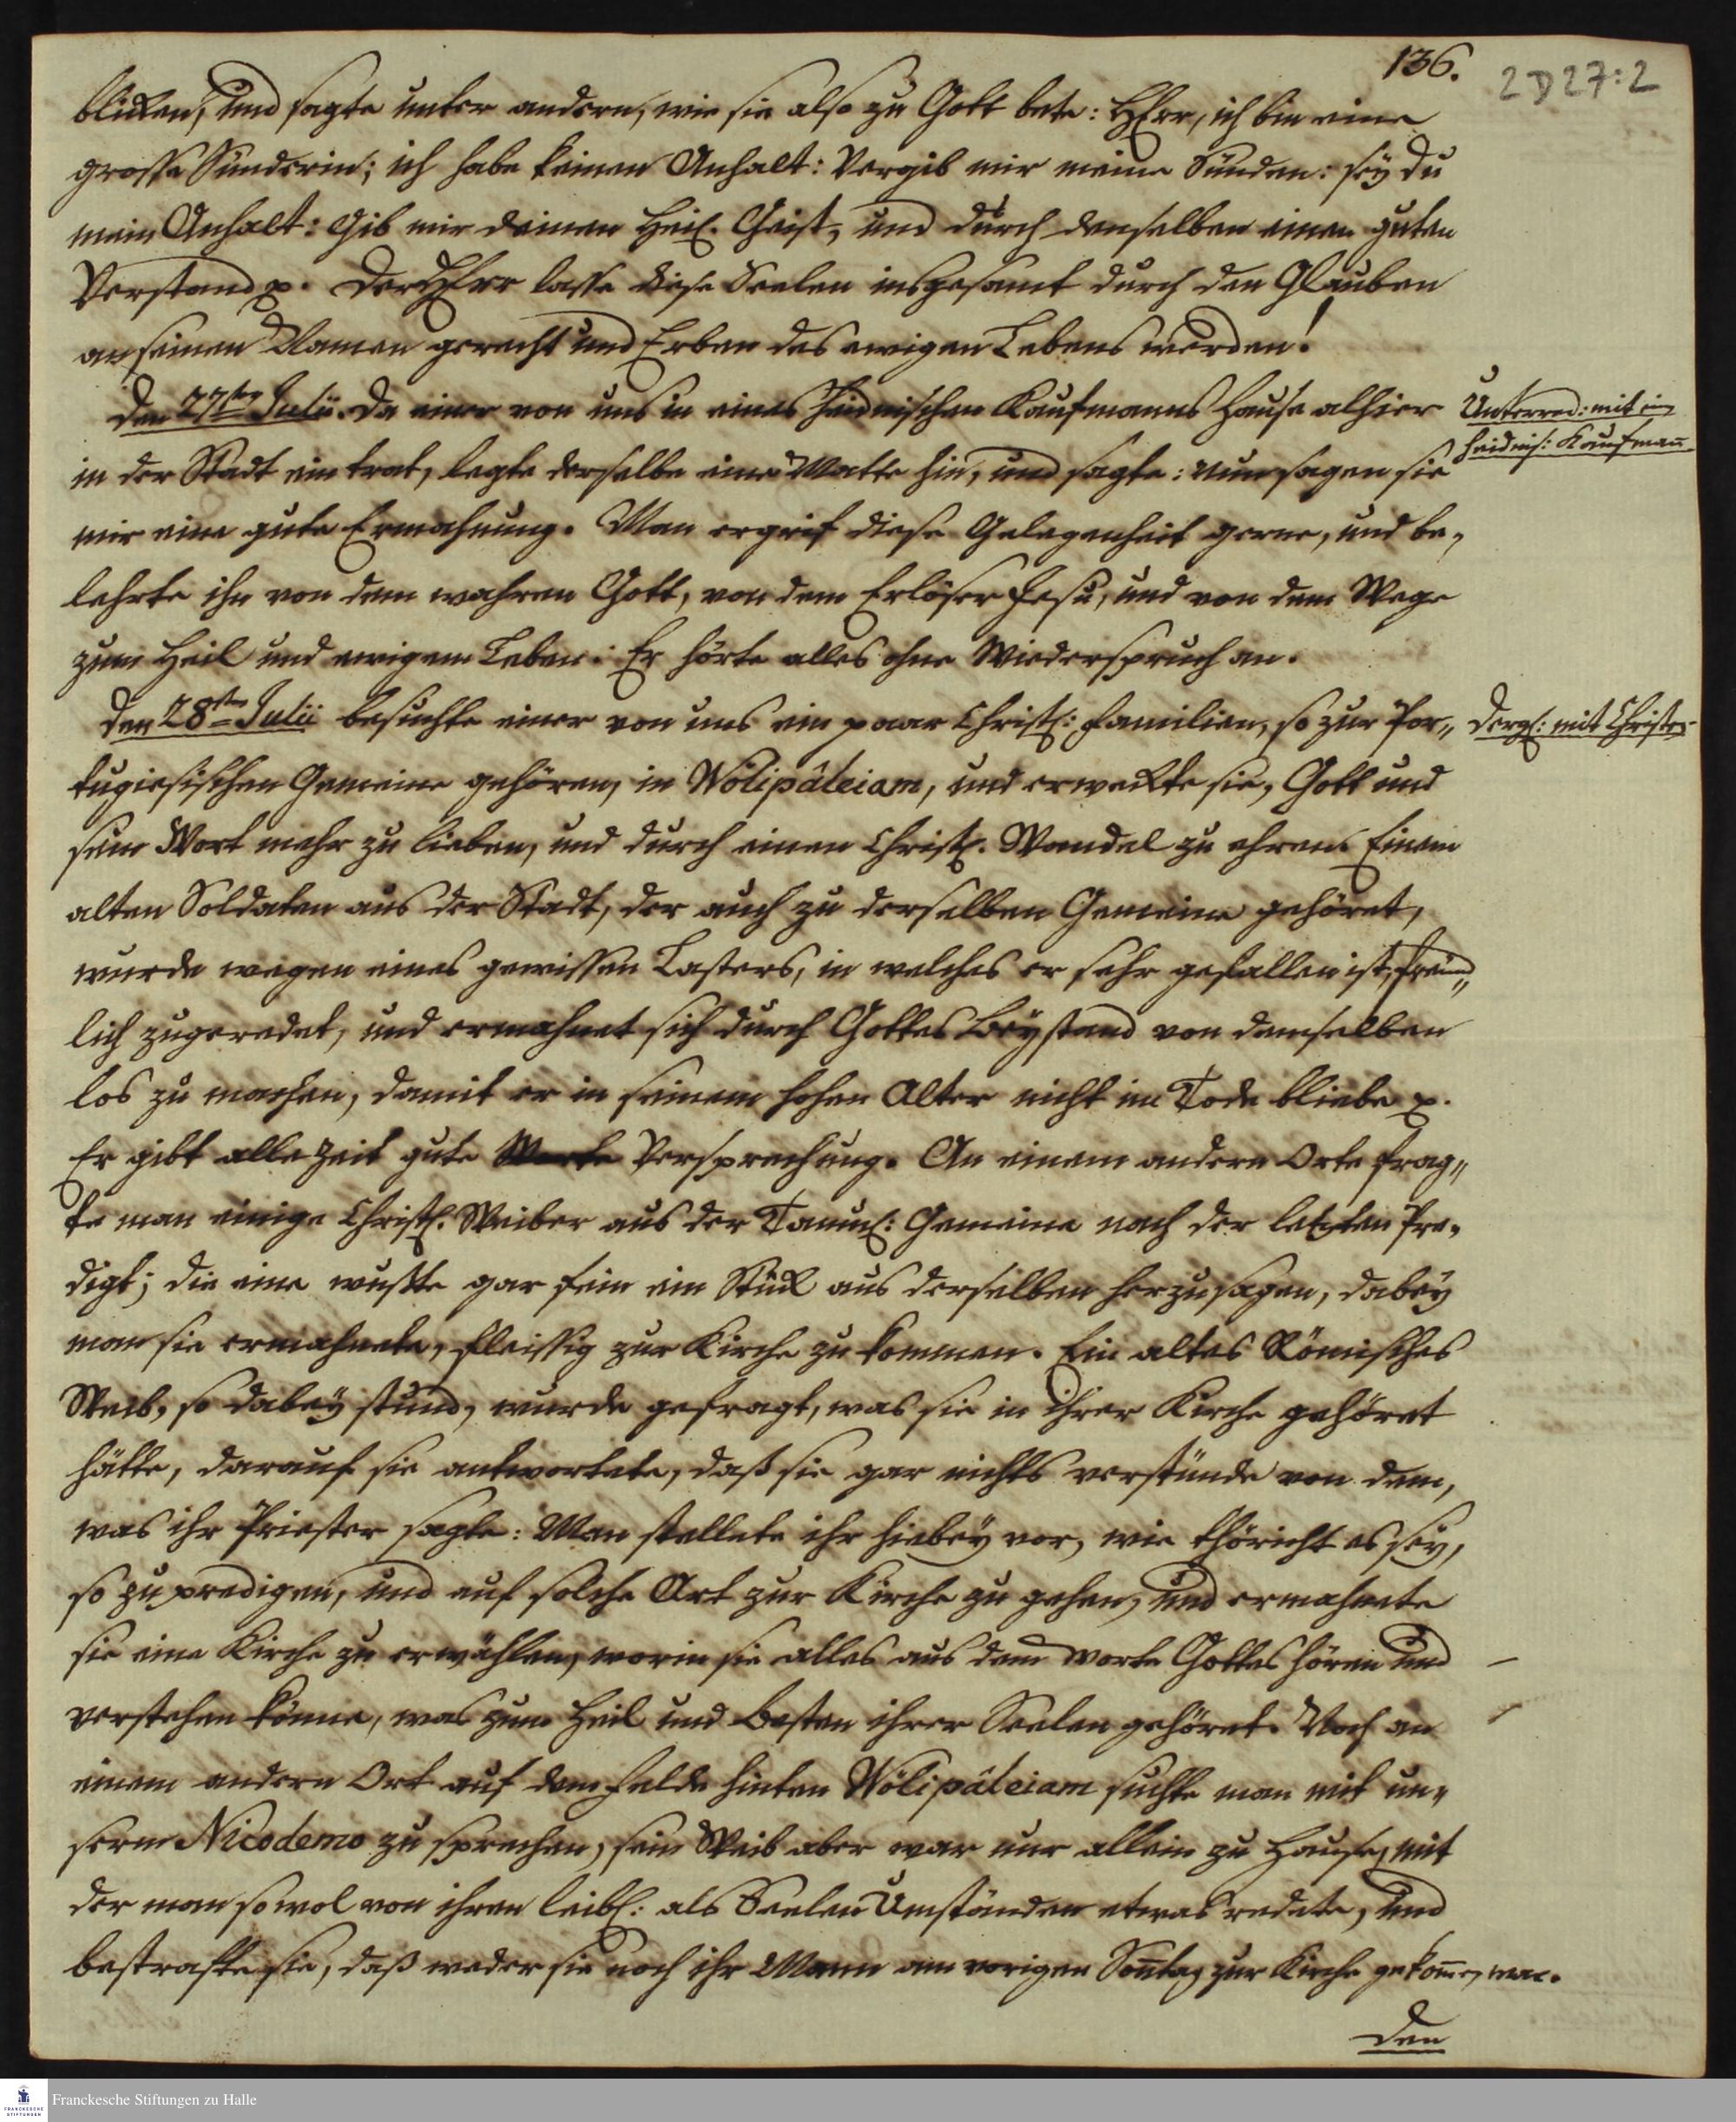 136.
2D27:2
blicken, und sagte unter andern, wie sie also zu Gott bete: HErr, ich bin eine
grosse Sünderin; ich habe keinen Anhalt: Vergib mir meine Sünden: sey du
mein Anhalt: Gib mir deinen Heil. Geist, und durch denselben einen guten
Verstand p. Der HErr lasse diese Seelen insgesamt durch den Glauben
an seinen Namen gerecht und Erben des ewigen Lebens werden!
Den 27ten Julii. Da einer von uns in eines Heidnischen Kaufmanns Hause alhier
Unterred: mit ein
heidnis: Kaufmann
in der Stadt eintrat, legte derselbe eine Matte hin, und sagte: nun sagen sie
mir eine gute Ermahnung. Man ergrif diese Gelegenheit gerne, und be-
lehrte ihn von dem wahren Gott, von dem Erlöser Jesu, und von dem Wege
zum Heil und ewigem Leben: Er hörte alles ohne Wiederspruch an.
Den 28ten Julii besuchte einer von uns ein paar Christl: Familien, so zur Por-
Dergl: mit Christen
tugiesischen Gemeine gehören, in Wölipâleiam, und erweckte sie, Gott und
sein Wort mehr zu lieben, und durch einen Christl. Wandel zu ehren. Einem
alten Soldaten aus der Stadt, der auch zu derselben Gemeine gehöret,
wurde wegen eines gewissen Lasters, in welches er sehr gefallen ist, freund-
lich zugeredet, und ermahnet sich durch Gottes Beystand von demselben
los zu machen, damit er in seinem hohen Alter nicht im Tode bliebe p.
Er gibt alle Zeit gute Worte Versprechung. An einem andern Orte frag-
te man einige Christl. Weiber aus der Tamul: Gemeine nach der letzten Pre-
digt; die eine wußte gar fein ein Stück aus derselben herzusagen, dabey
man sie ermahnete, fleissig zur Kirche zu kommen. Ein altes Römisches
Weib, so dabey stund, wurde gefragt, was sie in ihrer Kirche gehöret
hätte, darauf sie antwortete, daß sie gar nichts verstünde von dem,
was ihr Priester sagte: Man stellete ihr hiebey vor, wie thöricht es sey,
so zu predigen, und auf solche Art zur Kirche zu gehen, und ermahnete
sie eine Kirche zu erwählen, worin sie alles aus dem Worte Gottes hören und
verstehen könne, was zum Heil und Besten ihrer Seelen gehöret. Noch an
einem andern Ort auf dem Felde hinten Wölipâleiam suchte man mit un-
serm Nicodemo zu sprechen, sein Weib aber war nur allein zu Hause, mit
der man so wol von ihren leibl: als Seelen Umständen etwas redete, und
bestrafte sie, daß weder sie noch ihr Mann am vorigen Sontag zur Kirche gekommen war.
Den
Franckesche Stiftungen zu Halle
FRANCKESCHE
STIFTUNGEN